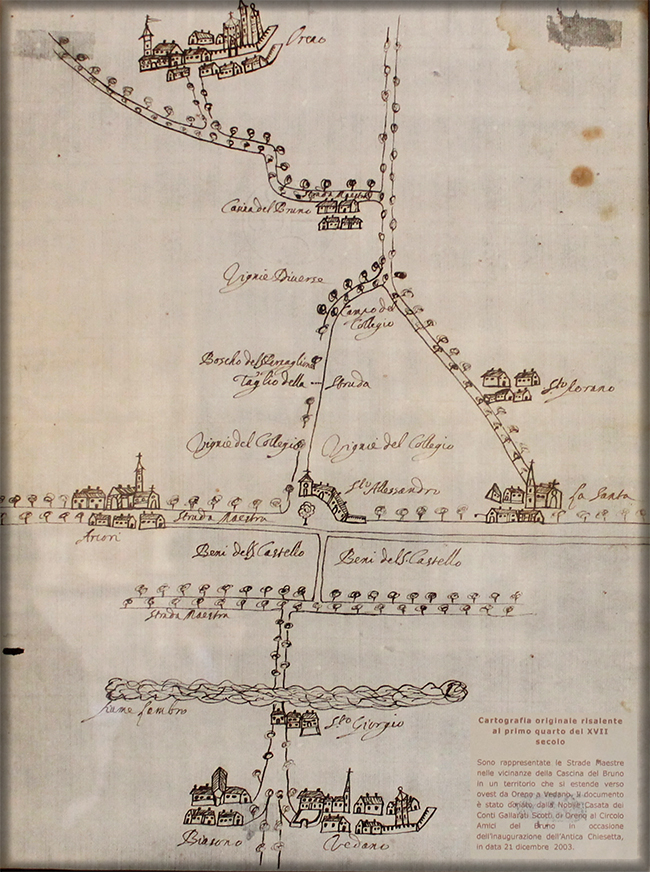 Oreno
Strada Maestra
Casina del Bruno
Vignie Diverse
Campo del
Collegio
Boscho del S.
Taglio della Strada
S.to Corano
Vignie del Collegio
Vignie del Collegio
S.to Allessandro
La Santa
Strada Maestra
Arcori
Beni del S. Castello
Beni del S. Castello
Strada Maestra
fiume Lambro
S.to Giorgio
Biasono
Vedano
Cartografia originale risalente
al primo quarto del XVII
secolo
Sono rappresentate le Strade Maestre
nelle vicinanze della Cascina del Bruno
in un territorio che si estende verso
ovest da Oreno a Vedano. Il documento
è stato donato dalla Nobile Casata dei
Conti Gallarati Scotti di Oreno al Circolo
Amici del Bruno in occasione
dell'inaugurazione dell'Antica Chiesetta,
in data 21 dicembre 2003.